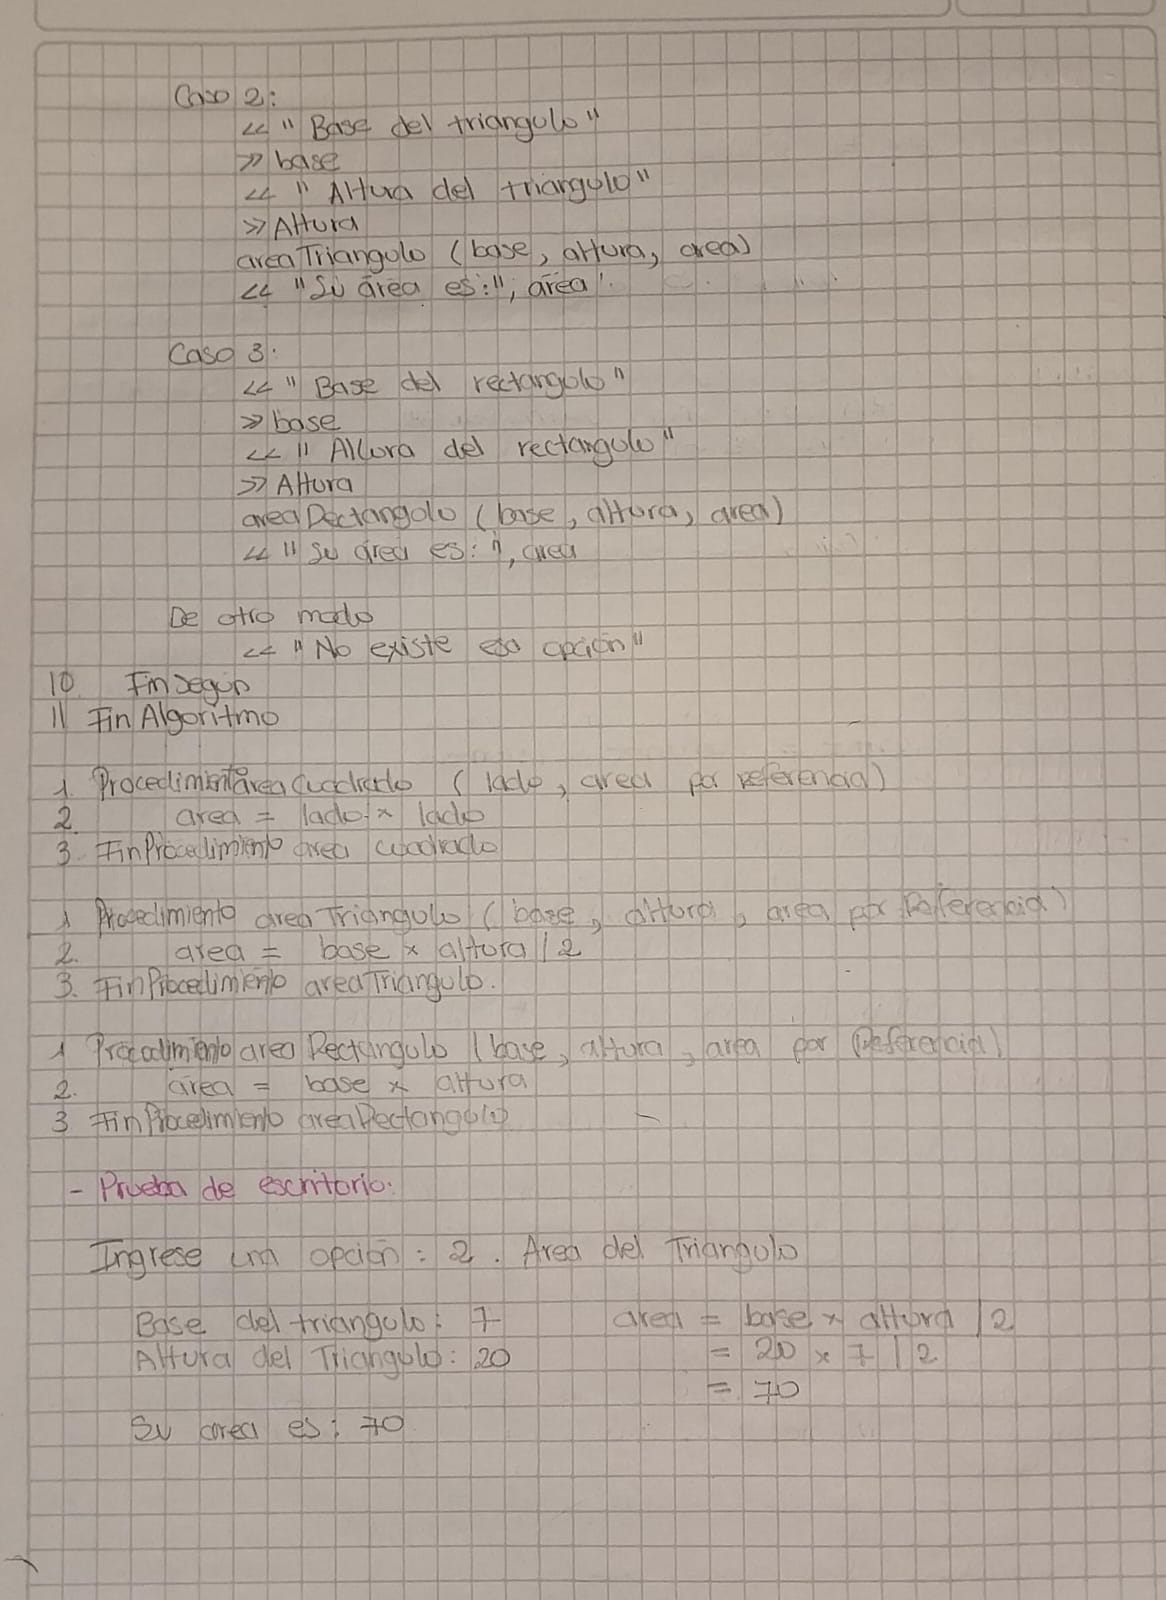 Caso 2:
<< "Base del triangulo"
>> base
<< "Altura del triangulo"
>> Altura
areaTriangulo (base, altura, area)
<< "Su área es:", área
Caso 3:
<< "Base del rectangulo"
>> base
<< "Altura del rectangulo"
>> Altura
areaRectangulo (base, altura, area)
<< "Su área es:", area
De otro modo
<< "No existe esa opción"
10 FinSegun
11 FinAlgoritmo
1. Procedimiento areaCuadrado (lado, area por referencia)
2. area = lado x lado
3. FinProcedimiento area cuadrado
1 Procedimiento areaTriangulo (base, altura, area por Referencia)
2. area = base x altura / 2
3. FinProcedimiento areaTriangulo.
1 Procedimiento areaRectangulo (base, altura, area por Referencia)
2. área = base x altura
3 FinProcedimiento areaRectangulo
- Prueba de escritorio.
Ingrese una opción: 2. Area del Triangulo
Base del triangulo: 7 area = base x altura / 2
Altura del Triangulo: 20 = 20 x 7 / 2
= 70
Su area es: 70